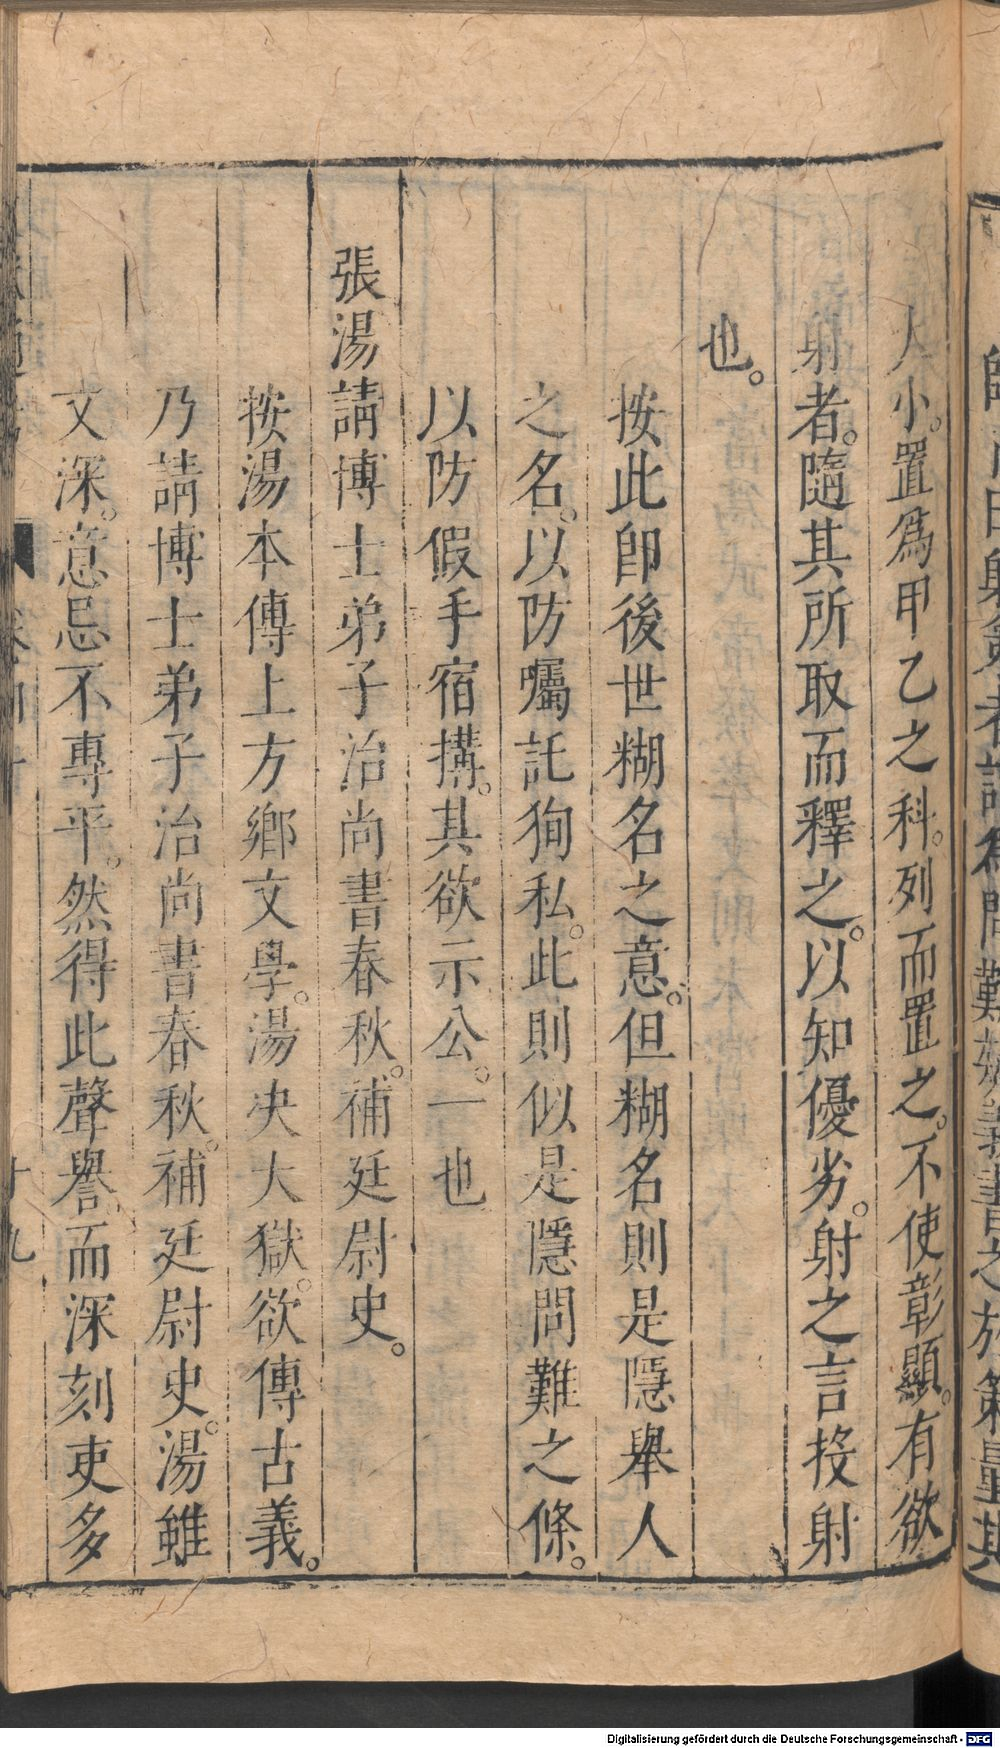 大小。置為甲乙之科。列而置之。不使彰顯。有欲
射者。隨其所取而釋之。以知優劣。射之言投射
也。
按此卽後世糊名之意。但糊名則是隱舉人
之名。以防囑託徇私。此則似是隱問難之條。
以防假手宿搆。其欲示公。一也
張湯請博士弟子治尚書春秋。補廷尉史。
按湯本傳上方鄉文學。湯決大獄。欲傳古義。
乃請博士弟子治尚書春秋。補廷尉史。湯雖
文深。意忌不專平。然得此聲譽。而深刻吏多
十九
Digitalisierung gefördert durch die Deutsche Forschungsgemeinschaft - DFG